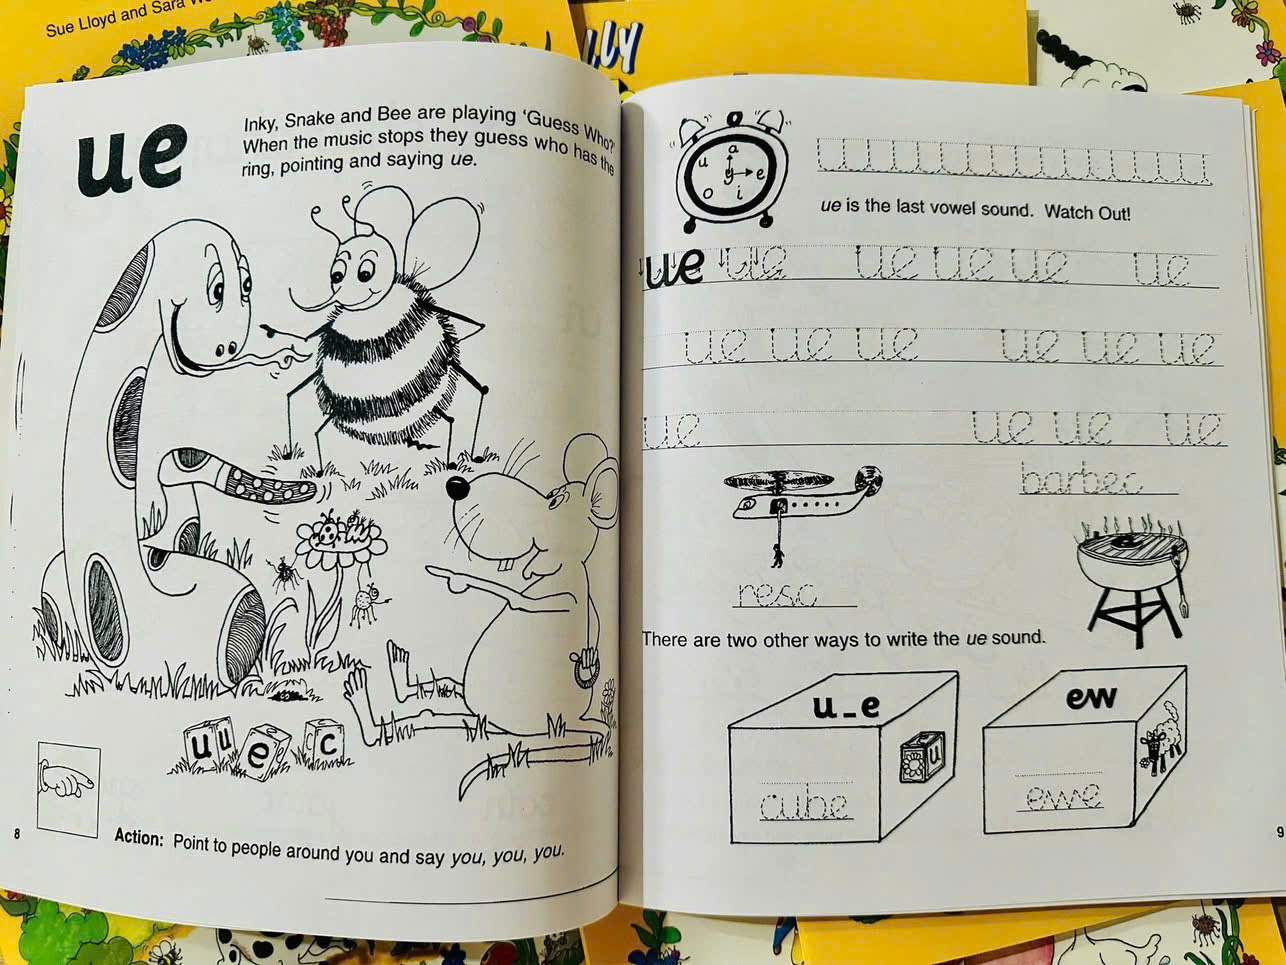 Sue Lloyd and Sara
LLY
ue
Inky, Snake and Bee are playing ‘Guess Who?’
When the music stops they guess who has the
ring, pointing and saying ue.
u u e c
8
Action: Point to people around you and say you, you, you.
a
u e
y
o i
ue is the last vowel sound. Watch Out!
ue ue ue ue ue ue
ue ue ue ue ue ue
ue ue ue ue
barbec
resc
There are two other ways to write the ue sound.
u_e
u
cube
ew
ewe
9